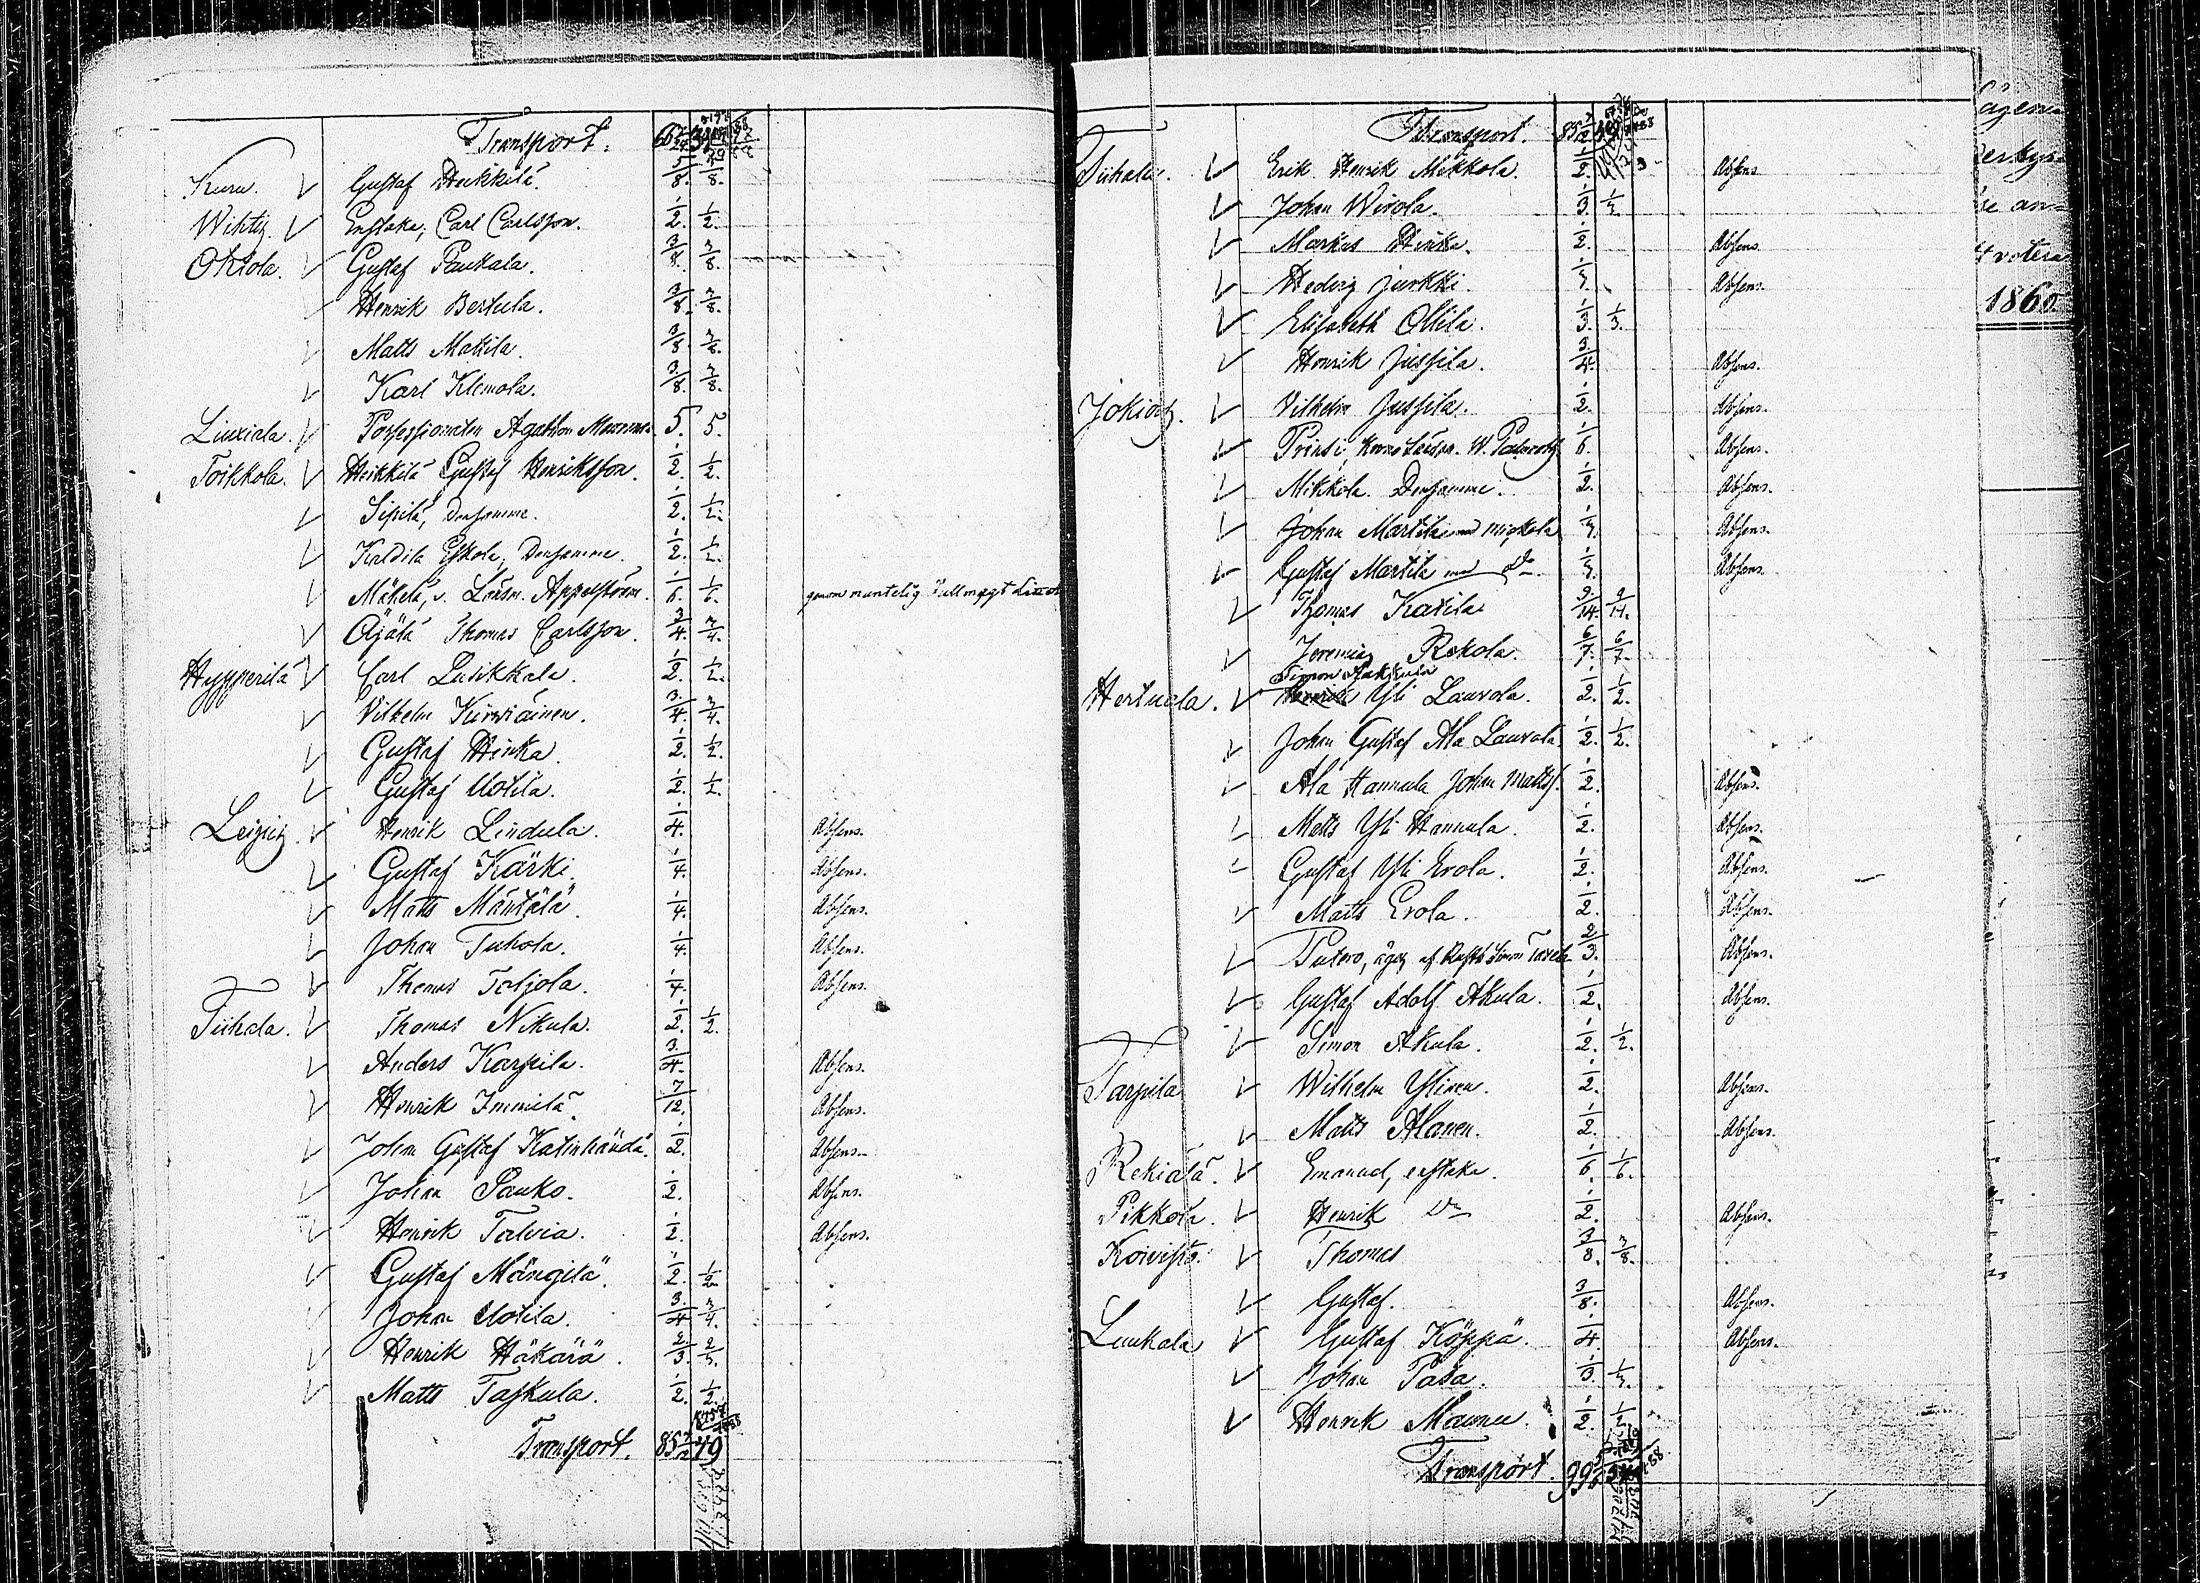 Transport.
Kuru. Gustaf Heikkilä. 5/8. 5/8.
Wihtiz Enstaka, Carl Carlsson. 1/2. 1/2.
Oktola. Gustaf Paukala. 3/8. 3/8.
Henrik Bertula. 3/8. 3/8.
Matts Mattila. 3/8. 3/8.
Karl Klemola. 3/8. 3/8.
Liuxiala. Possessionaten Agathon 5. 5.
Toikkola. Heikkilä Gustaf Henriksson. 1/2. 1/2.
Sipilä, Densamme. 1/2. 1/2.
Eskola, Densamme. 1/2. 1/2.
Mähelä, v. Länsm. Appelström. 1/6. 1/6. genom muntelig Fullmagt
Äijälä Thomas Carlsson. 3/4. 3/4.
Hypperilä Carl Lusikkala. 1/2. 1/2.
Vilhelm Kirwiäinen. 3/4. 3/4.
Gustaf Hinka. 1/2. 1/2.
Gustaf Uotila. 1/2. 1/2.
Henrik Lindula. 1/4. Absens.
Gustaf Kärki. 1/4. Absens.
Matts Mäntälä. 1/4. Absens.
Johan Tuhola. 1/4. Absens.
Thomas Toljola. 1/4. Absens.
Tiihala. Thomas Nikula. 1/2. 1/2.
Anders Karpila. 3/4. Absens.
Henrik Immilä. 7/12. Absens.
Johan Gustaf Katinhändä. 1/2. Absens.
Johan Pauko. 1/2. Absens.
Henrik Talvia. 1/2. Absens.
Gustaf Mängilä. 1/2. 1/2.
Johan Uotila. 3/4. 3/4.
Henrik Häkärä. 2/3. 2/3.
Matts Taskula. 1/2. 1/2.
Transport. 85 7/12 49
Transport. 85 7/12 49
Tiihala. Erik Henrik Mikkola. 1/2. Absens
Johan Wirola. 1/3. 1/3.
Markus Hinka. 1/2. Absens.
Hedvig Jurkki. 1/3. Absens.
Elisabeth Ollila. 1/3. 1/3.
Henrik Jussila. 3/4. Absens.
Vilhelm Jussila. 1/2. Absens.
Prinsi, W. 1/6. Absens.
Mikkola. Densamme. 1/2. Absens.
Johan Martila med 1/3. Absens.
Gustaf Martila med Do. 1/3. Absens.
Thomas Kaxila. 9/14. 9/14.
Jeremias Rekola. 6/7. 6/7.
Simon
Hertuala. Henrik Yli Laurola. 1/2. 1/2.
Johan Gustaf Ala Laurola. 1/2. 1/2.
Ala Hannula Johan Mattss. 1/2. Absens.
Matts Yli Hannula. 1/2. Absens.
Gustaf Yli Erola. 1/2. Absens.
Matts Erola. 1/2. Absens.
äges af Simon 2/3. Absens.
Gustaf Adolf Akula. 1/2. Absens.
Simon Akula. 1/2. 1/2.
Tarpila Wilhelm Ylinen. 1/2. Absens.
Matts Alanen. 1/2. Absens.
Rekiälä. Emanuel, enstaka. 1/6. 1/6.
Pikkola. Henrik Do 1/2. Absens.
Koivisto. Thomas 3/8. 3/8.
Gustaf. 3/8. Absens.
Luukala Gustaf Köppä. 1/4. Absens.
Johan Pasa. 1/3. 1/3.
Henrik Maunu. 1/2. 1/2
Transport.
votera
1860.